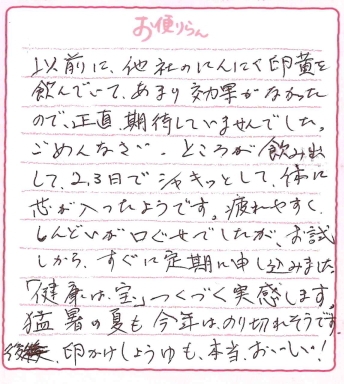 お便りらん
以前に、他社のにんにく卵黄を
飲んでいて、あまり効果がなかった
ので、正直、期待していませんでした。
ごめんなさい。ところが飲み出
して、2、3日でシャキッとして、体に
芯が入ったようです。疲れやすく
しんどいが口ぐせでしたが、お試
しから、すぐに定期に申し込みました
「健康は宝」つくづく実感します。
猛暑の夏も今年は、のり切れそうです
卵かけしょうゆも、本当、おいしい!